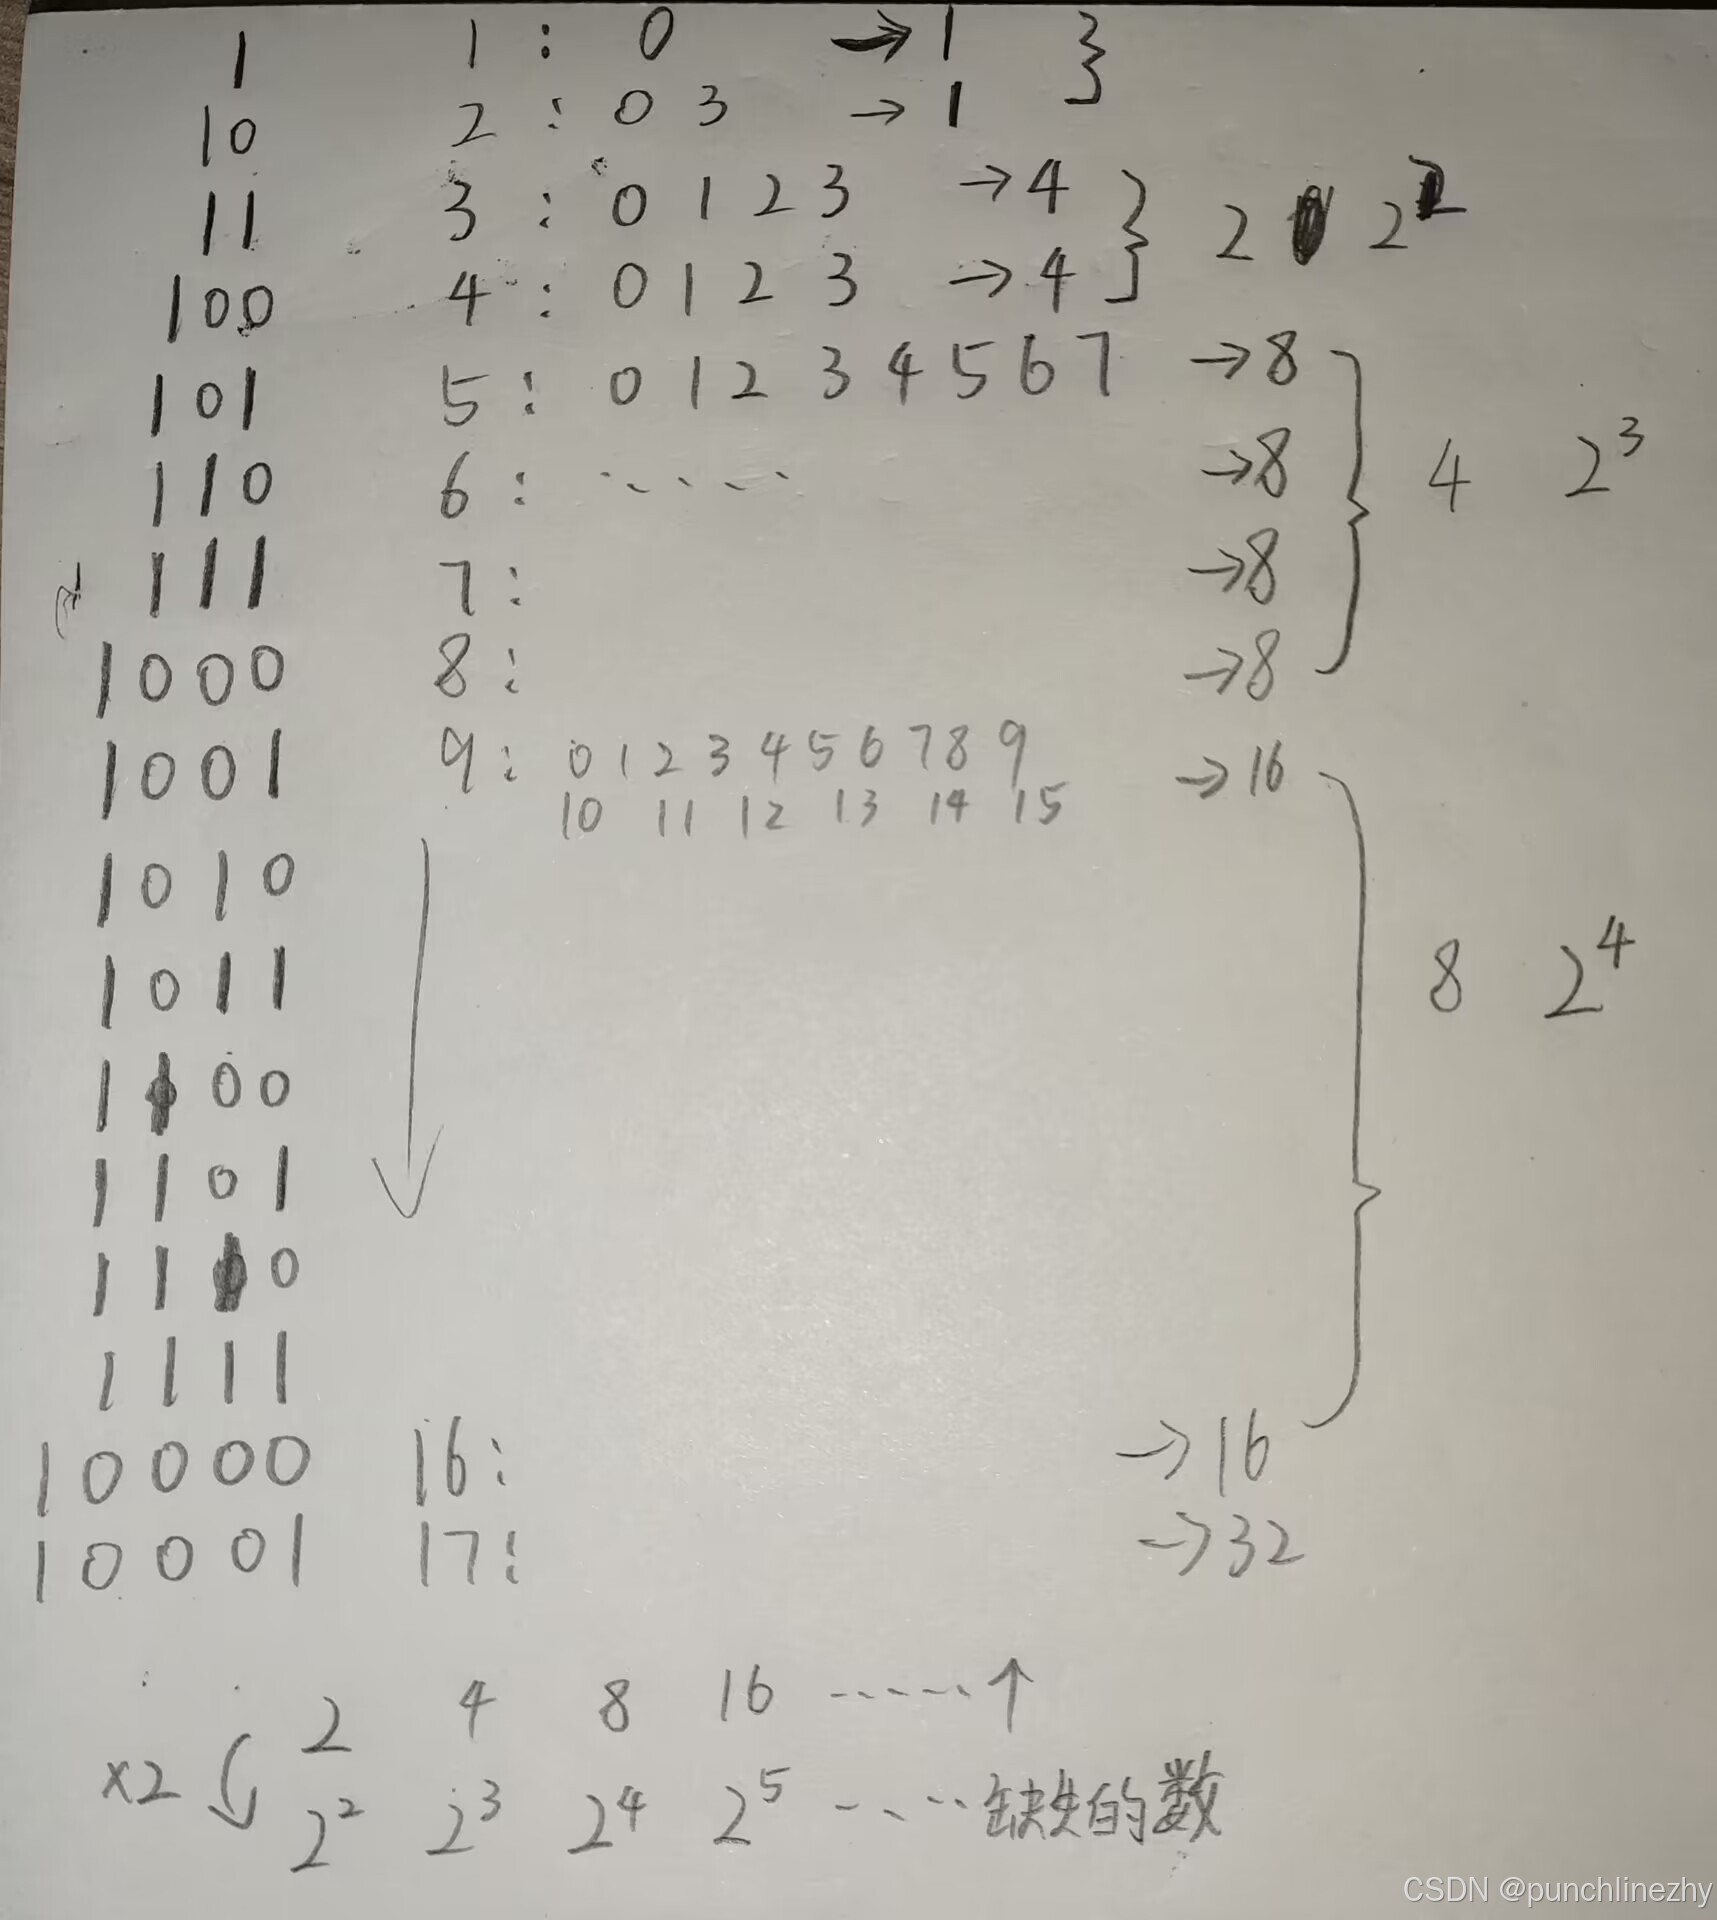 1 1 : 0 → 1 }
10 2 : 0 3 → 1
11 3 : 0 1 2 3 → 4 } 2 2²
100 4 : 0 1 2 3 → 4
101 5 : 0 1 2 3 4 5 6 7 → 8 }
110 6 : ..... → 8 4 2³
111 7 : → 8
1000 8 : → 8
1001 9 : 0 1 2 3 4 5 6 7 8 9 → 16 }
10 11 12 13 14 15
1010
1011 8 2⁴
1100
1101
1110
1111
10000 16 : → 16
10001 17 : → 32
2 4 8 16 ...... ↑
×2 2² 2³ 2⁴ 2⁵ ..... 缺失的数
CSDN @punchlinezhy